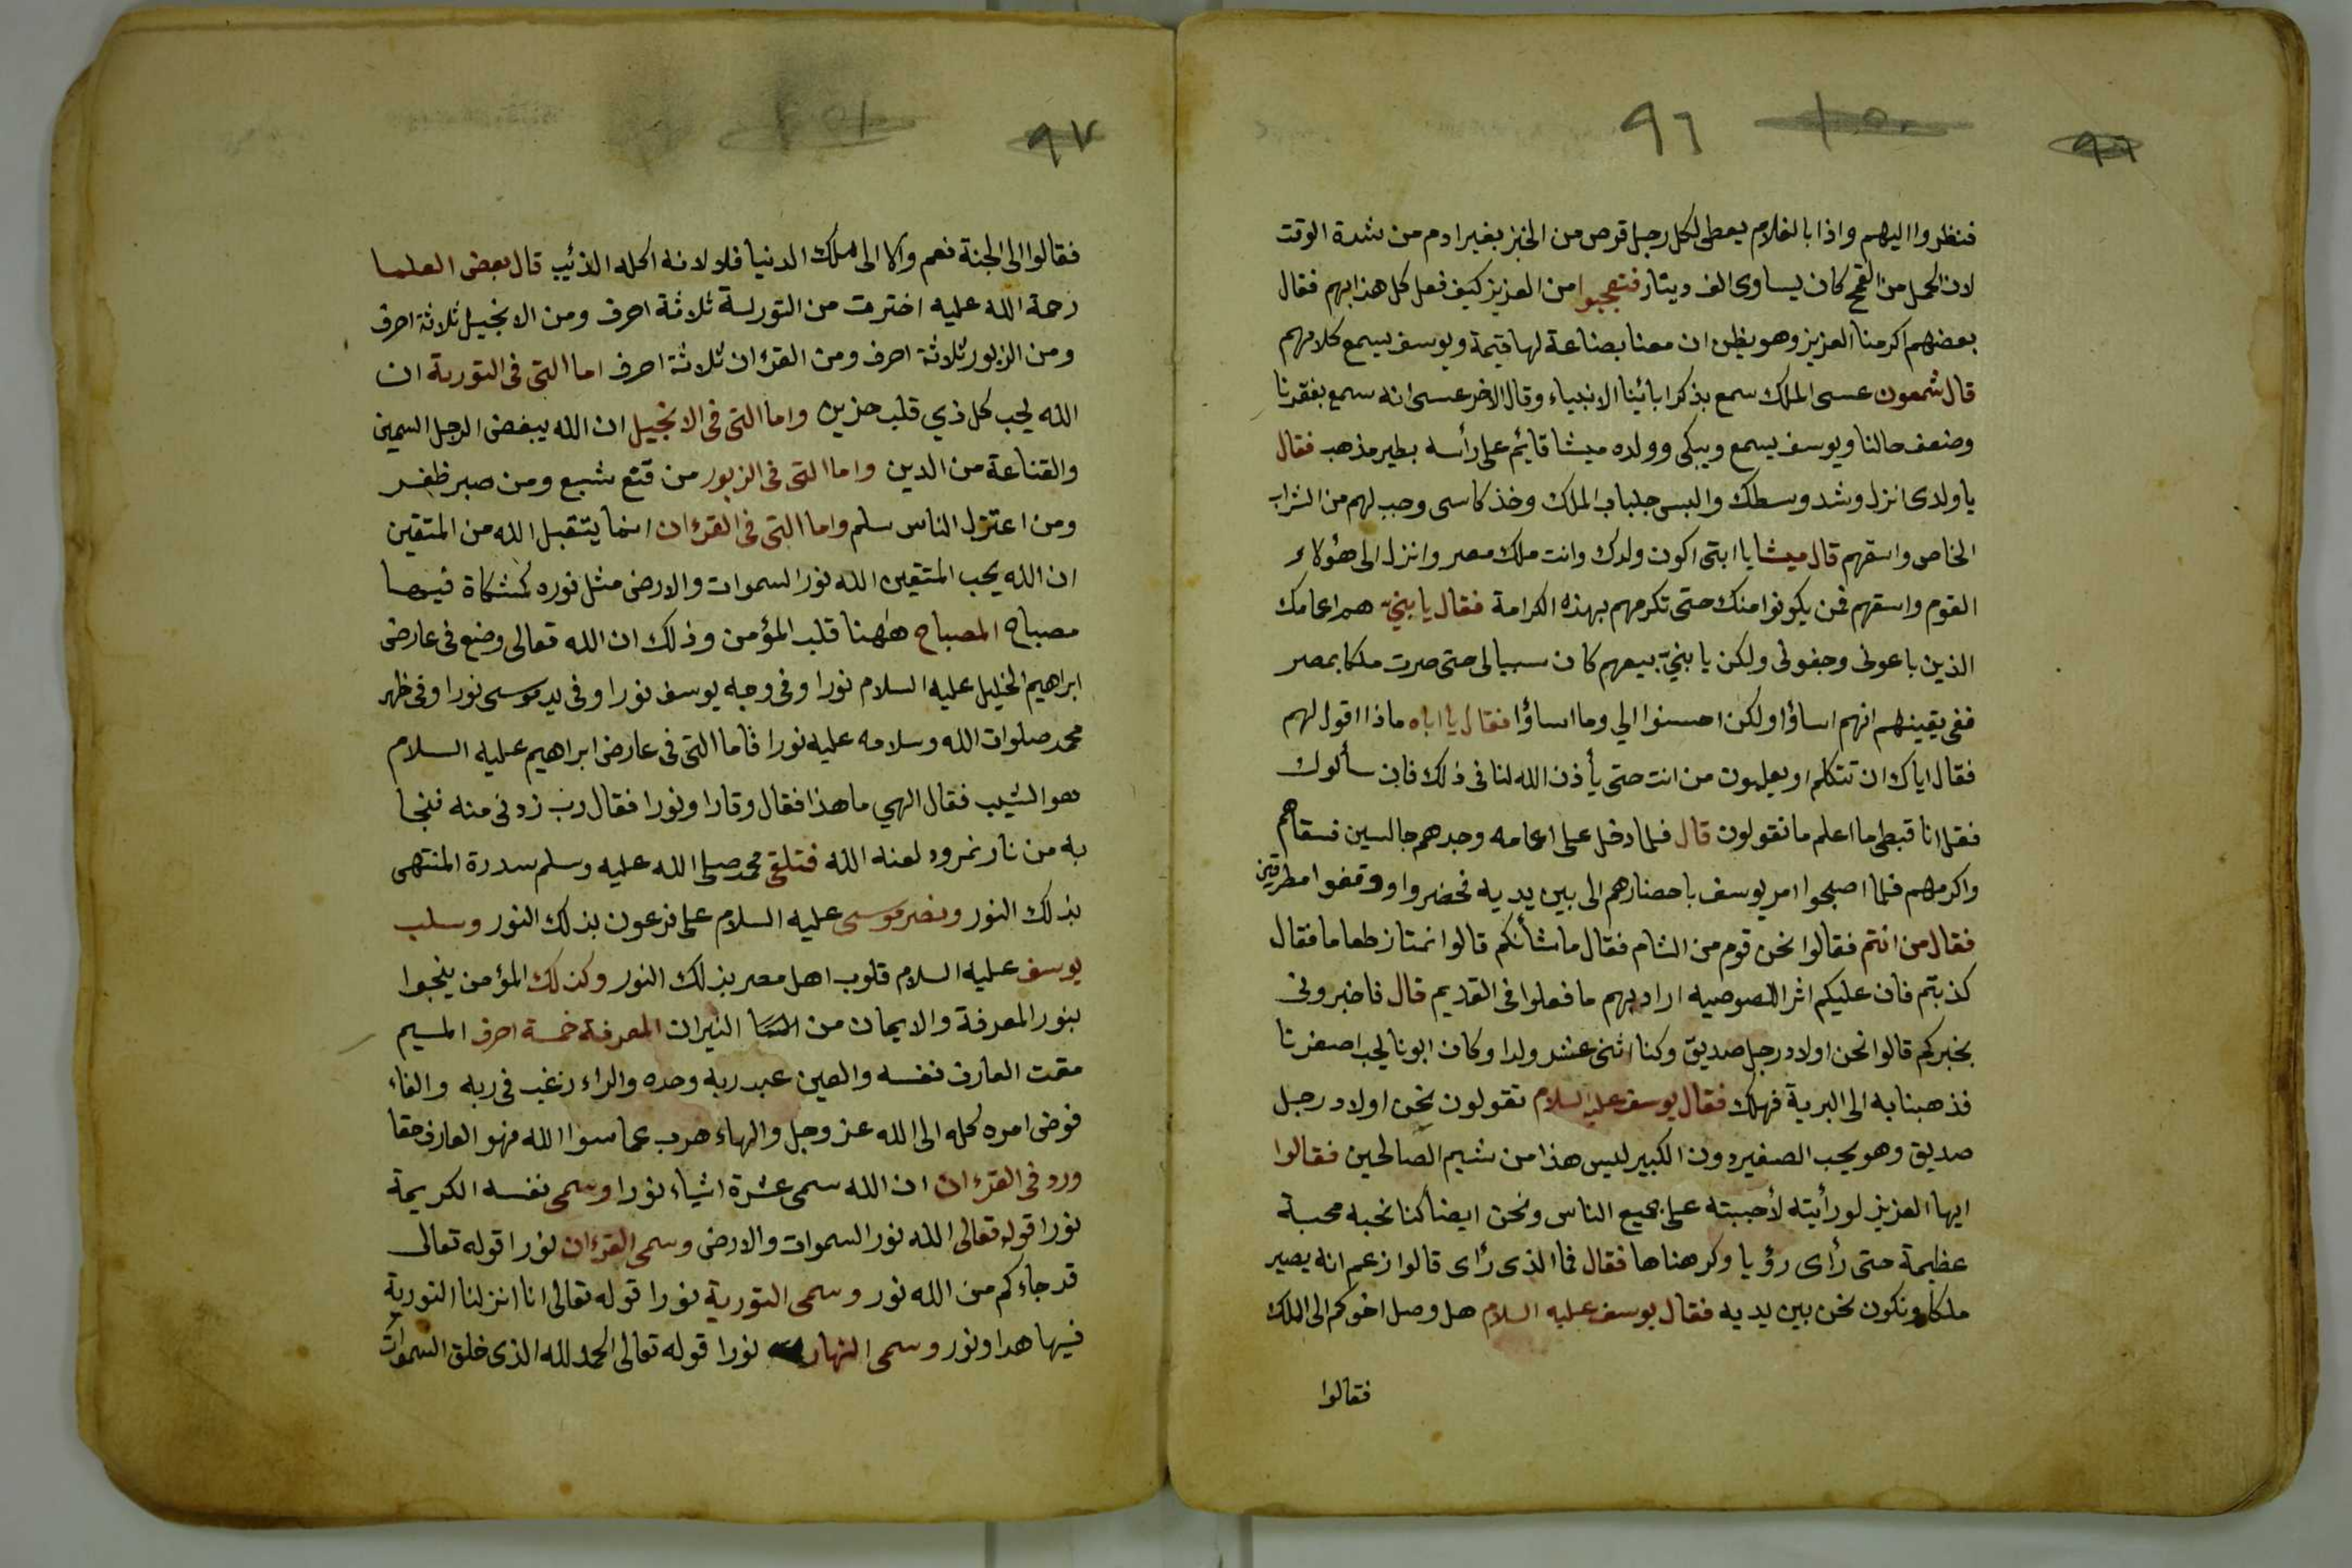 ٩٦
١٥٠
٩٦
فنظروا اليهم واذا بالغلام يعطى لكل رجل قرص من الخبز بغير ادم من شدة الوقت
لان الحمل من القمح كان يساوى الف دينار فتعجبوا من العزيز كيف فعل كل هذا بهم فقال
بعضهم اكرمنا العزيز وهو يظن ان معنا بضاعة لها قيمة ويوسف يسمع كلامهم
قال شمعون عسى الملك سمع بذكر ابائينا الانبياء وقال الاخر عسى انه سمع بفقرنا
وضعف حالنا ويوسف يسمع ويبكى وولده ميشا قائم على رأسه بطير مذهب فقال
يا ولدى انزل وشد وسطك والبس جلباب الملك وخذ كاسى وصب لهم من الشراب
الخاص واسقهم قال ميشا يا ابتى اكون ولدك وانت ملك مصر وانزل الى هؤلاء
القوم واسقهم فمن يكونوا منك حتى تكرمهم بهذه الكرامة فقال يا بنيّ هم اعمامك
الذين باعونى وجفونى ولكن يا بنيّ بيعهم كان سببا لى حتى صرت ملكا بمصر
ففى يقينهم انهم اساؤا ولكن احسنوا الي وما اساؤا فقال يا اباه ماذا اقول لهم
فقال اياك ان تتكلم او يعلمون من انت حتى يأذن الله لنا فى ذلك فان سألوك
فقل انا قبطى ما اعلم ما تقولون قال فلما دخل على اعمامه وجدهم جالسين فسقاهم
واكرمهم فلما اصبحوا امر يوسف باحضارهم الى بين يديه فحضروا ووقفوا مطرقين
فقال من انتم فقالوا نحن قوم من الشام فقال ما شأنكم قالوا نمتاز طعاما فقال
كذبتم فان عليكم اثر اللصوصيه اراد بهم ما فعلوا فى القديم قال فاخبرونى
بخبركم قالوا نحن اولاد رجل صديق وكنا اثنى عشر ولدا وكان ابونا يحب اصغرنا
فذهبنا به الى البرية فهلك فقال يوسف عليه السلام تقولون نحن اولاد رجل
صديق وهو يحب الصغير دون الكبير ليس هذا من شيم الصالحين فقالوا
ايها العزيز لو رأيته لأحببته على جميع الناس ونحن ايضا كنا نحبه محبة
عظيمة حتى رأى رؤيا وكرهناها فقال فما الذى رأى قالوا زعم انه يصير
ملكا ونكون نحن بين يديه فقال يوسف عليه السلام هل وصل اخوكم الى الملك
فقالوا
٩٧
١٥١
فقالوا الى الجنة نعم والا الى ملك الدنيا فلا لانه اكله الذئب قال بعض العلما
رحمة الله عليه اخترت من التورلة ثلاثة احرف ومن الانجيل ثلاثة احرف
ومن الزبور ثلاثة احرف ومن القرءان ثلاثة احرف اما التى فى التورية ان
الله يحب كل ذي قلب حزين واما التى فى الانجيل ان الله يبغض الرجل السمين
والقناعة من الدين واما التى فى الزبور من قنع شبع ومن صبر ظفر
ومن اعتزل الناس سلم واما التى فى القرءان انما يتقبل الله من المتقين
ان الله يحب المتقين الله نور السموات والارض مثل نوره كمشكاة فيها
مصباح المصباح ههنا قلب المؤمن وذلك ان الله تعالى وضع فى عارض
ابراهيم الخليل عليه السلام نورا وفى وجه يوسف نورا وفى يد موسى نورا وفى ظهر
محمد صلوات الله وسلامه عليه نورا فاما التى فى عارض ابراهيم عليه السلام
هو الشيب فقال الهي ما هذا فقال وقارا ونورا فقال رب زدنى منه فنجا
به من نار نمرود لعنه الله فتلقى محمد صلى الله عليه وسلم سدرة المنتهى
بذلك النور ونصر موسى عليه السلام على فرعون بذلك النور وسلب
يوسف عليه السلام قلوب اهل مصر بذلك النور وكذلك المؤمن ينجوا
بنور المعرفة والايمان من النيران المعرفة خمسة احرف الميم
مقت العارف نفسه والعين عبد ربه وحده والراء رغب فى ربه والفاء
فوض امره كله الى الله عز وجل والهاء هرب عما سوا الله فهو العارف حقا
ورد فى القرءان ان الله سمى عشرة اشياء نورا وسمى نفسه الكريمة
نورا قوله تعالى الله نور السموات والارض وسمى القرءان نورا قوله تعالى
قد جاءكم من الله نور وسمى التورية نورا قوله تعالى انا انزلنا التورية
فيها هدا ونور وسمى النهار نورا قوله تعالى الحمد لله الذى خلق السموات